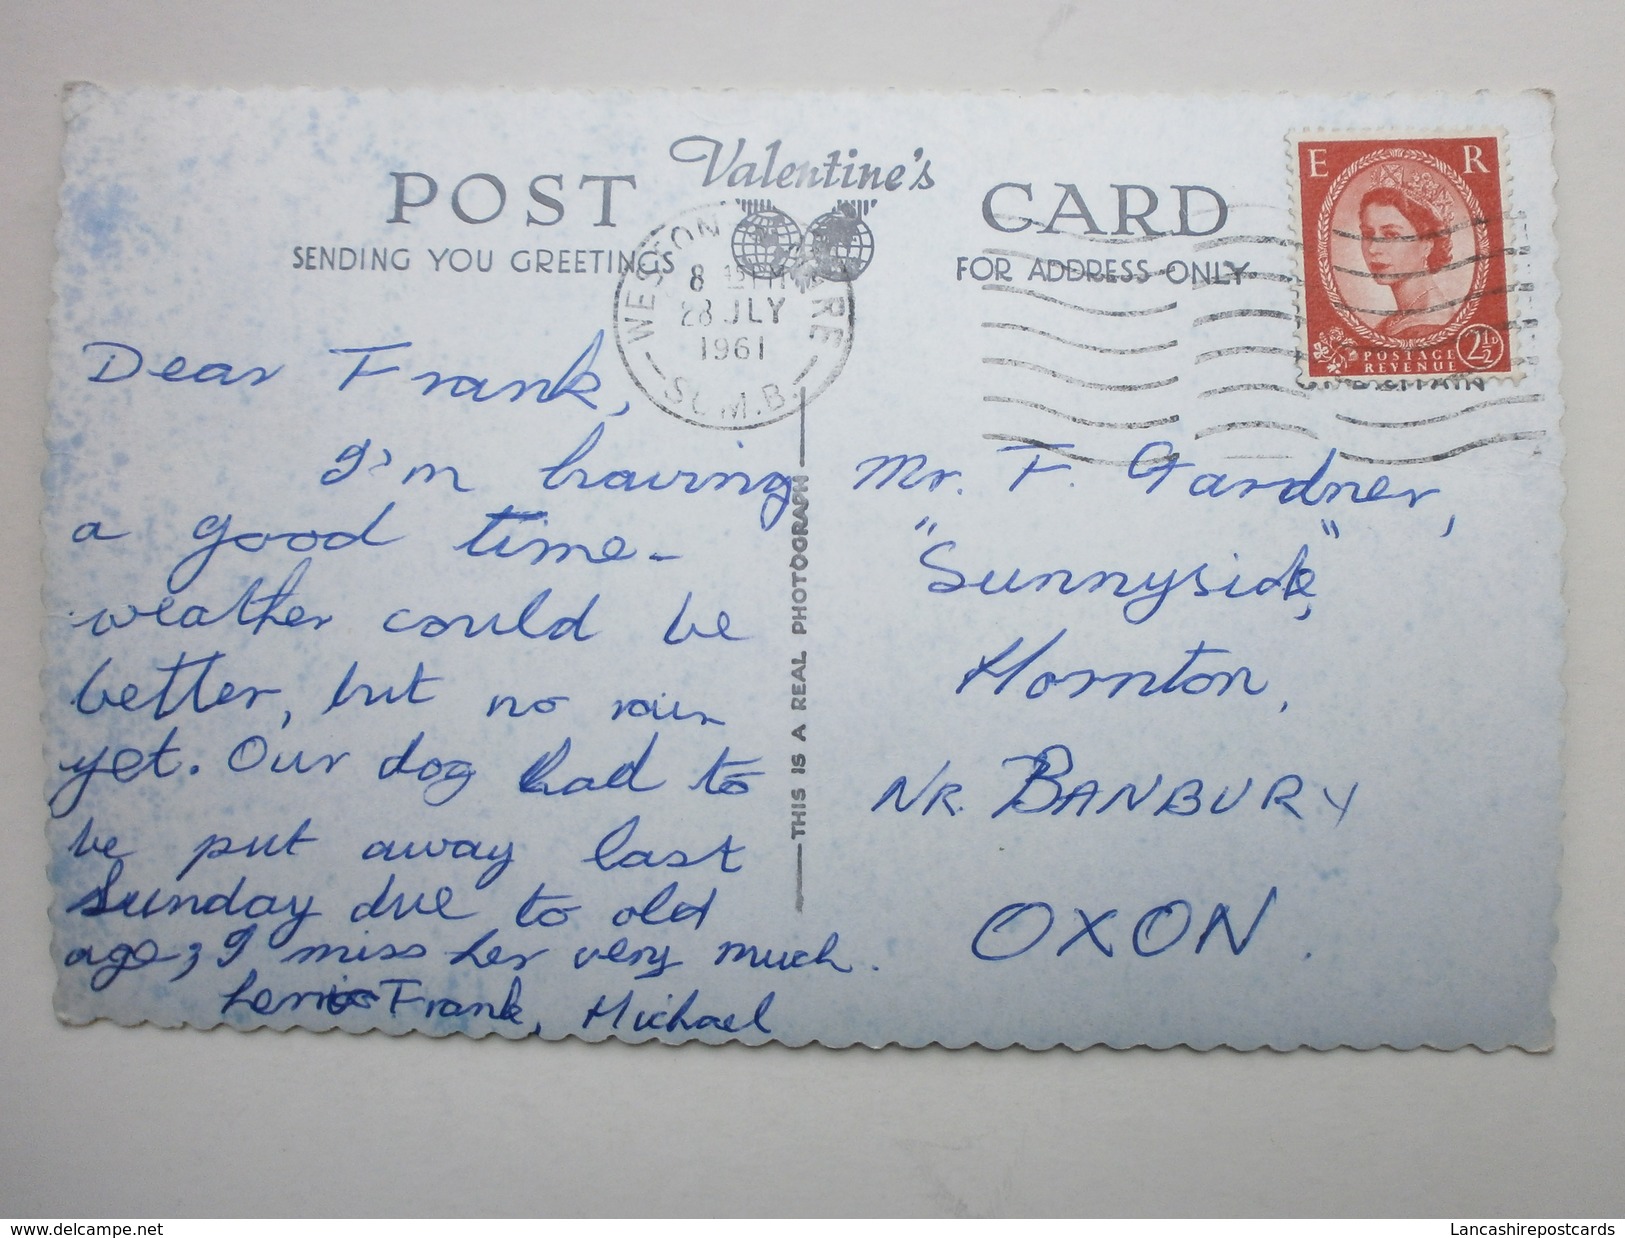 Valentine's
POST CARD
SENDING YOU GREETINGS
FOR ADDRESS ONLY
WESTON MARE
8
28 JLY
1961
SOM. B.
E R
POSTAGE
REVENUE
2½D
Dear Frank,
I'm having
a good time -
weather could be
better, but no rain
yet. Our dog had to
be put away last
Sunday due to old
age, I miss her very much.
Frank, Michael
THIS IS A REAL PHOTOGRAPH
Mr. F. Gardner,
"Sunnyside",
Hornton,
NR. BANBURY
OXON.
www.delcampe.net
Lancashirepostcards